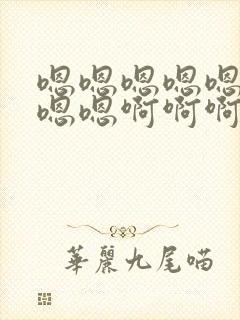 嗯嗯嗯嗯嗯
嗯嗯啊啊啊
華麗九尾喵